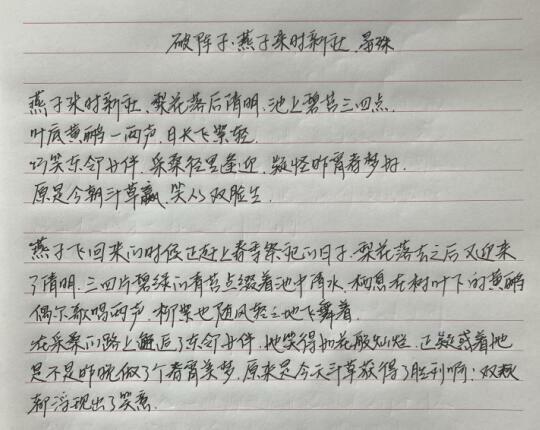 破阵子·燕子来时新社 晏殊
燕子来时新社,梨花落后清明.池上碧苔三四点.
叶底黄鹂一两声,日长飞絮轻.
巧笑东邻女伴,采桑径里逢迎,疑怪昨宵春梦好.
原是今朝斗草赢,笑从双脸生.
燕子飞回来的时候正赶上春季祭祀的日子.梨花落去之后又迎来
了清明.三四片碧绿的青苔点缀着池中清水,栖息在树叶下的黄鹂
偶尔歌唱两声,柳絮也随风轻轻地飞舞着.
在采桑的路上邂逅了东邻女伴,她笑得如花般灿烂.正疑惑着她
是不是昨晚做了个春宵美梦,原来是今天斗草获得了胜利啊!双颊
都浮现出了笑意.